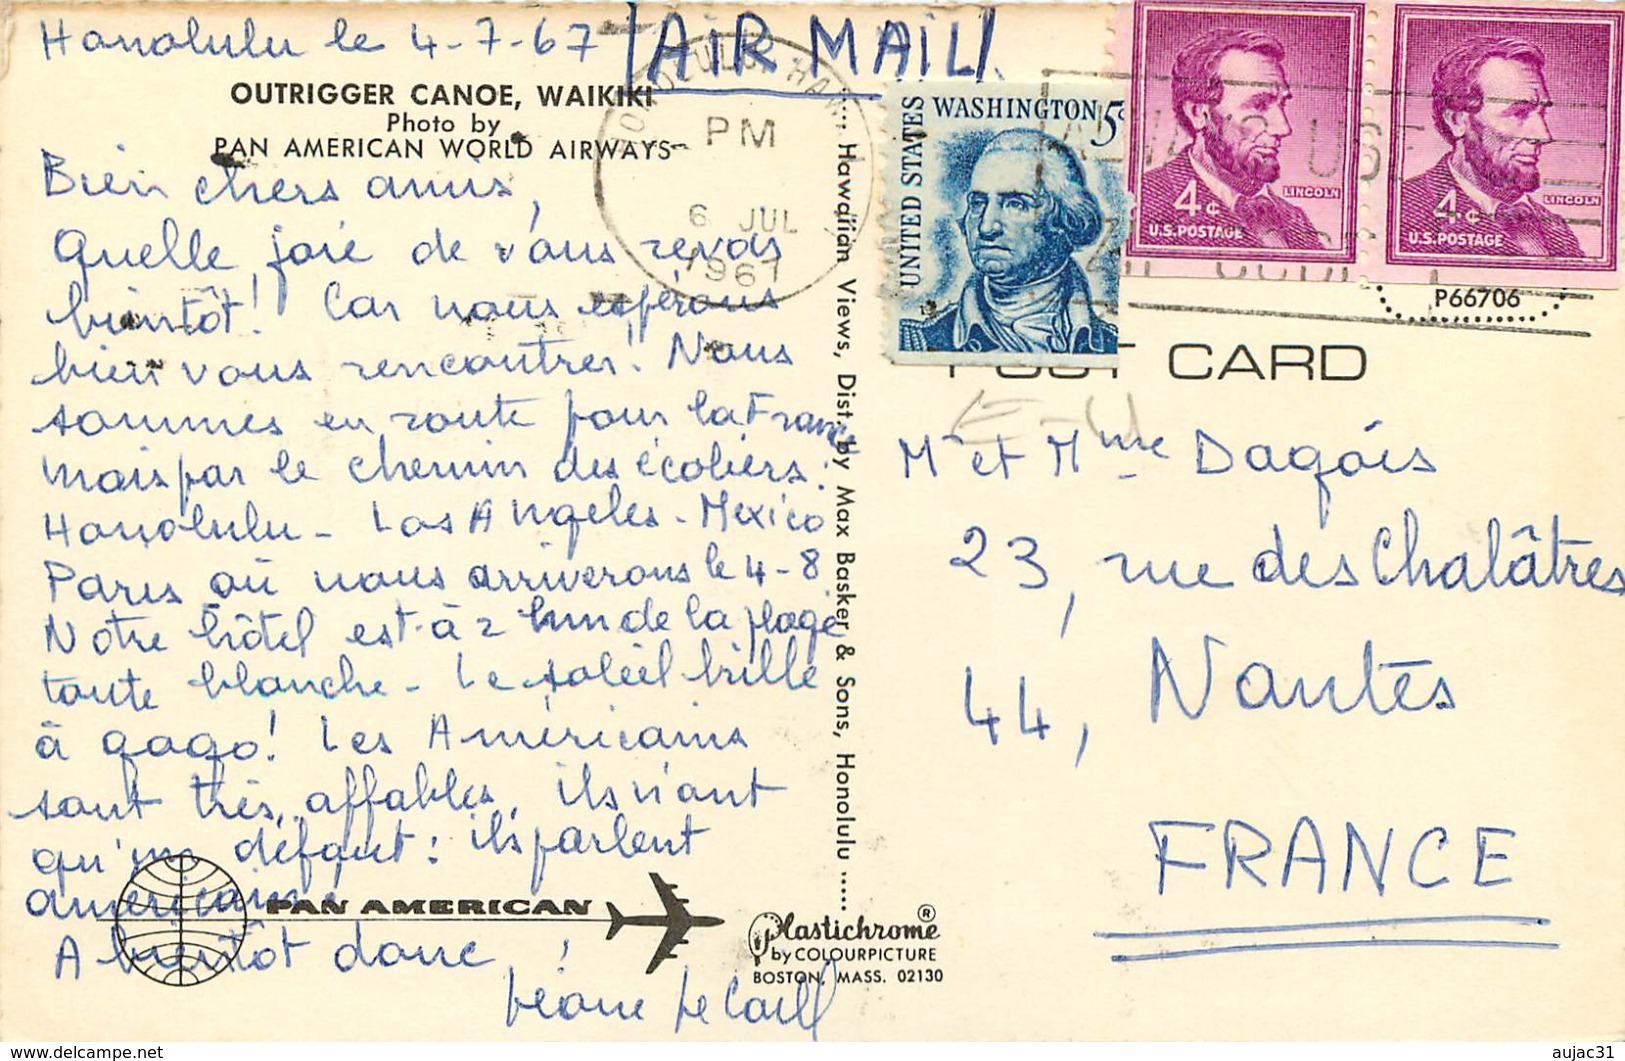 Honolulu le 4-7-67
AIR MAIL
OUTRIGGER CANOE, WAIKIKI
Photo by
PAN AMERICAN WORLD AIRWAYS
Bien chers amis,
Quelle joie de vous revoir
bientôt! Car nous espérons
bien vous rencontrer. Nous
sommes en route pour la France
mais par le chemin des écoliers:
Honolulu - Los Angeles - Mexico
Paris où nous arriverons le 4-8
Notre hôtel est à 2 km de la plage
toute blanche - Le soleil brille
à gogo! Les Américains
sont très affables, ils n'ont
qu'un défaut: ils parlent
américain.
PAN AMERICAN
A bientôt donc!
Le Caill
Hawaiian Views, Dist. by Max Basker & Sons, Honolulu
Plastichrome ®
by COLOURPICTURE
BOSTON, MASS. 02130
HONOLULU, HAWAII
PM
6 JUL
1967
UNITED STATES
WASHINGTON 5c
4¢
LINCOLN
U.S. POSTAGE
4¢
LINCOLN
U.S. POSTAGE
ALWAYS USE
ZIP CODE
P66706
POST CARD
E-U
Mr et Mme Dagois
23, rue des Chalâtres
44, Nantes
FRANCE
www.delcampe.net
aujac31